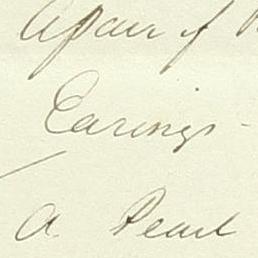 A pair of
Earings -
A Pearl